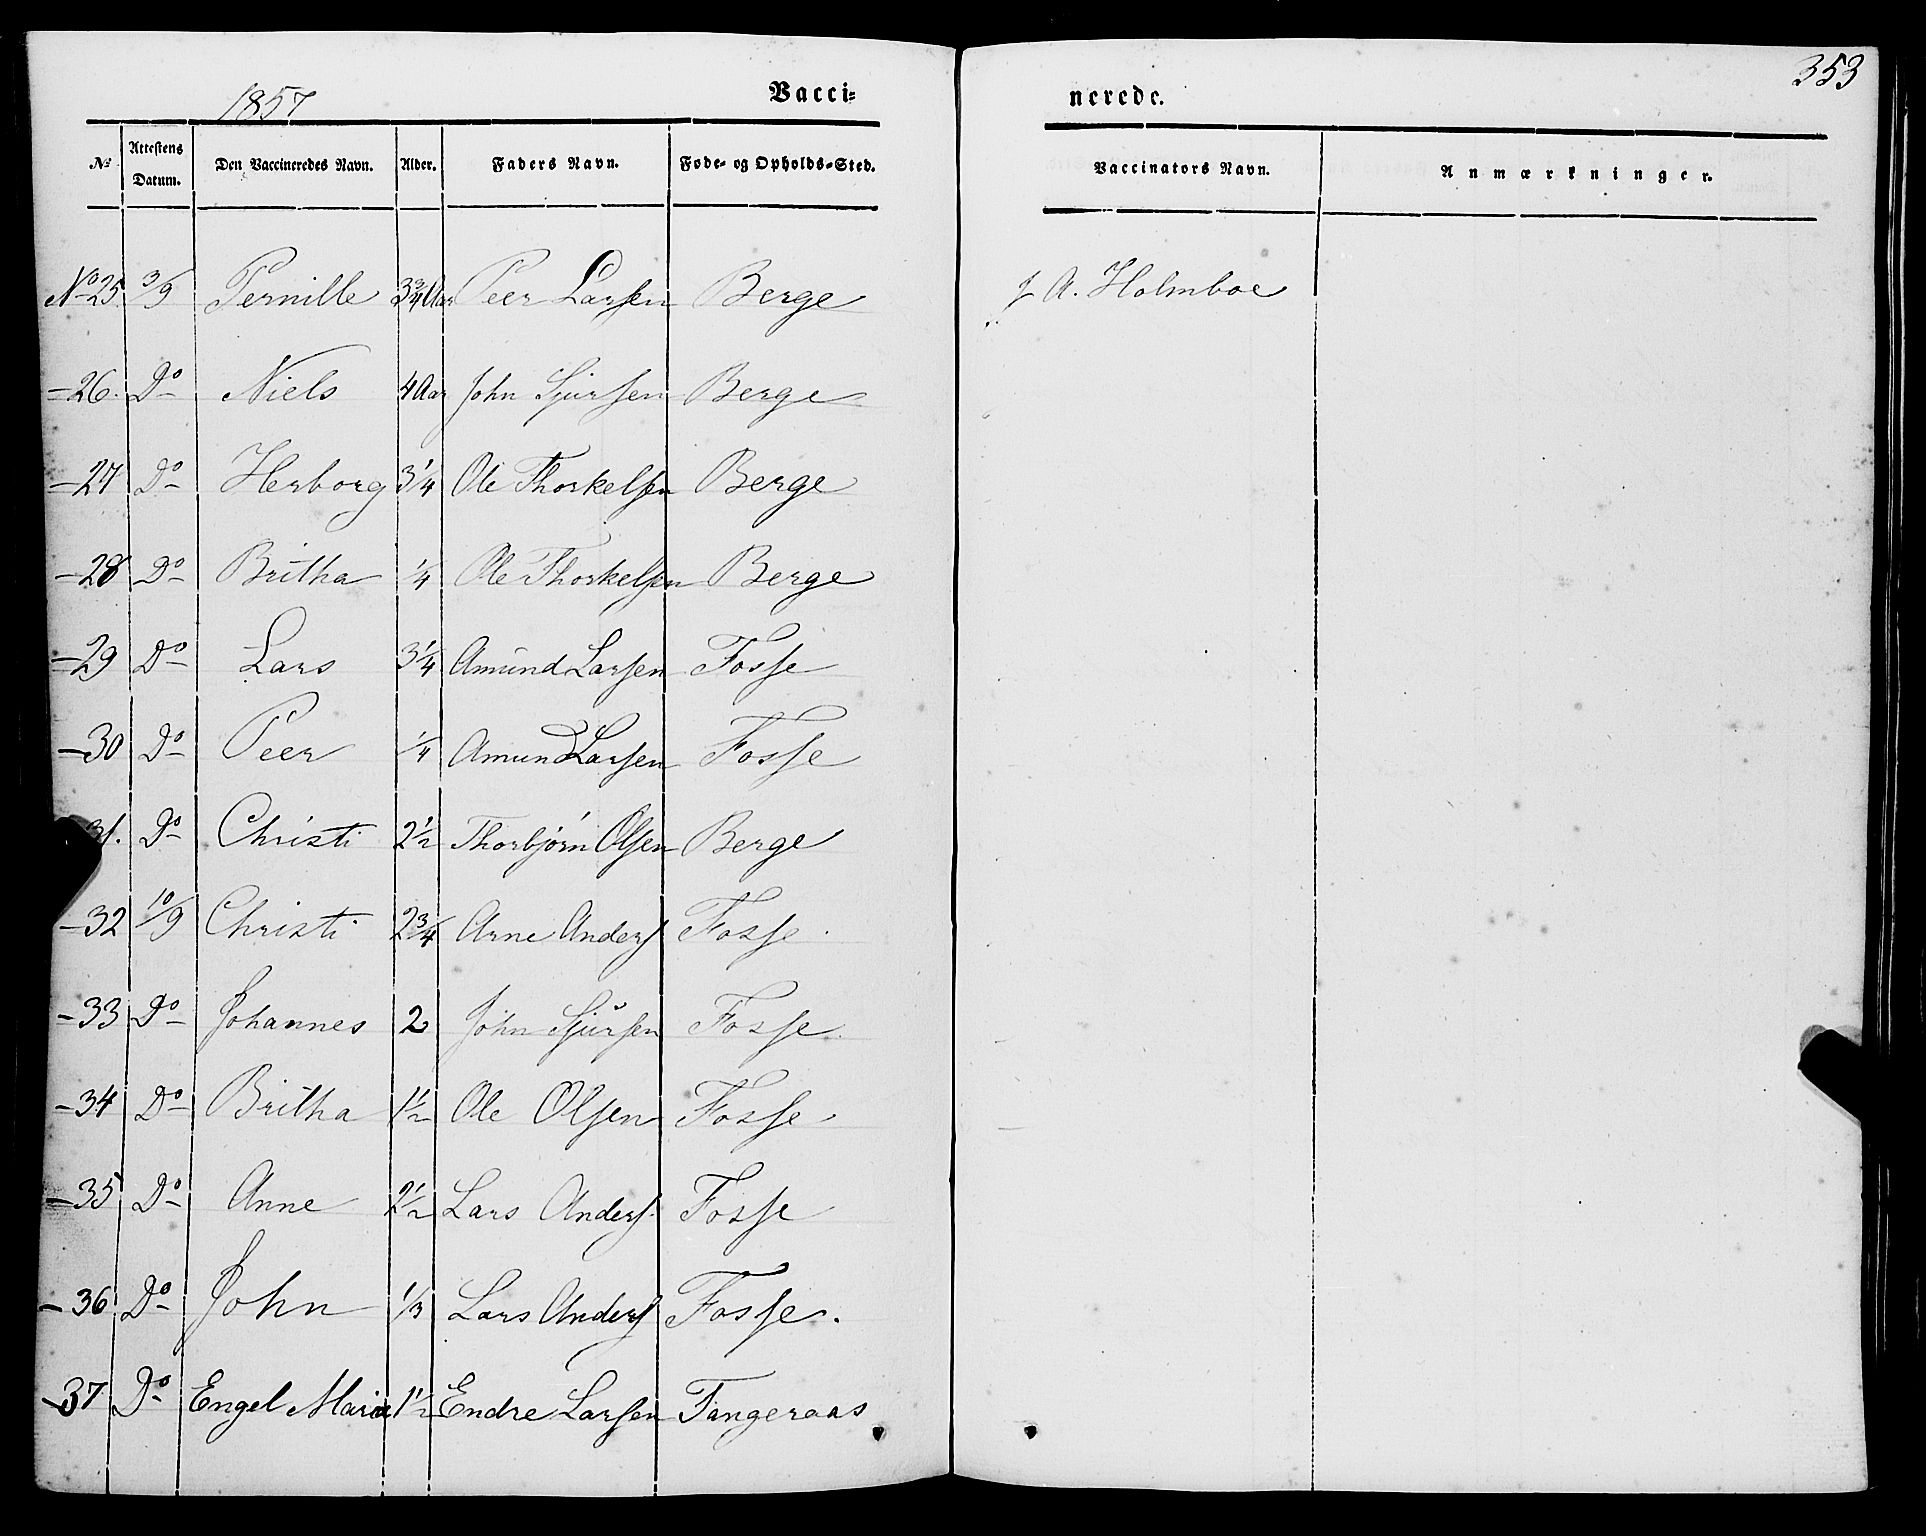 353
1857 Vacci= nerede.
No. Attestens Datum. Den Vaccineredes Navn. Alder. Faders Navn. Føde- og Opholds-Sted. Vaccinators Navn. Anmærkninger.
No 25. 3/9 Pernille 3 3/4 Aar Peer Larsen Berge J A. Holmboe
- 26. Do Niels 4 Aar John Sjursen Berge
- 27 Do Herborg 3 1/4 Ole Thorkelsen Berge
- 28 Do Britha 1/4 Ole Thorkelsen Berge
- 29 Do Lars 3 1/4 Amund Larsen Fosse
- 30 Do Peer 1/4 Amund Larsen Fosse
31. Do Christi 2 1/2 Thorbjørn Olsen Berge
- 32 10/9 Christi 2 3/4 Arne Anders Fosse.
- 33 Do Johannes 2 John Sjursen Fosse.
- 34 Do Britha 1 1/2 Ole Olsen Fosse
- 35 Do Anne 2 1/2 Lars Anders. Fosse
- 36 Do John 1/3 Lars Anders Fosse.
- 37 Do Engel Maria 1 1/2 Endre Larsen Tangeraas